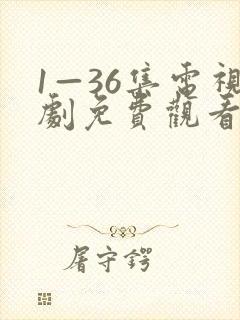 1—36集電視
劇免費觀看
屠守鍔